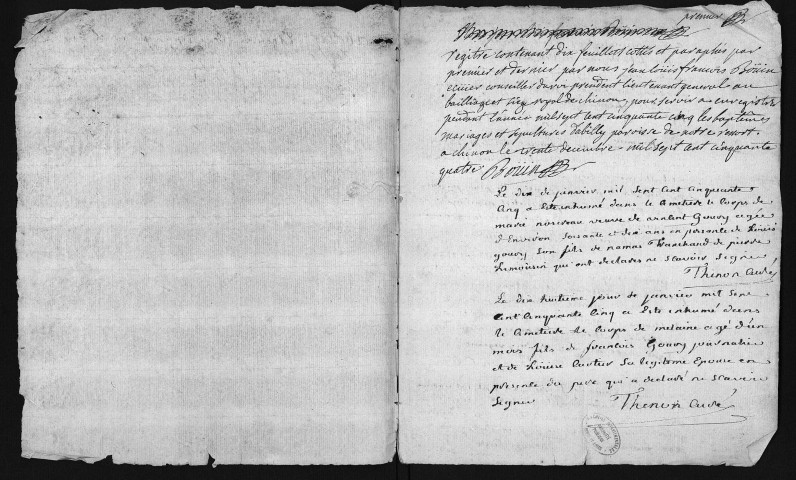 premier
registre contenant dix feuillets cottés et paraphés par
premier et dernier par nous jean louis francois Boüin
ecuier conseiller du roy president lieutenant general au
bailliage et siege royal de chinon, pour servir a enregistrer
pendant l'année mil sept cent cinquante cinq les baptêmes
mariages et sepultures d'abilly parroisse de notre ressort.
a chinon le trente decembre mil sept cent cinquante
quatre Boüin
Le dix de janvier mil sept cent cinquante
cinq a esté inhumé dans le cimetiere le corps de
marie veuve de Gouvy agée
d'Environ soixante et dix ans en presence de
gouvy son fils de Marchand de pierre
Limousin qui ont declarés ne scavoir signer
Thenon curé
Le dix huitieme jour de janvier mil sept
cent cinquante cinq a esté inhumé dans
le cimetiere le corps de agé d'un
mois fils de francois Gouvy journalier
et de Cartier sa legitime Epouse en
presence du pere qui a declaré ne scavoir
signer
Thenon curé